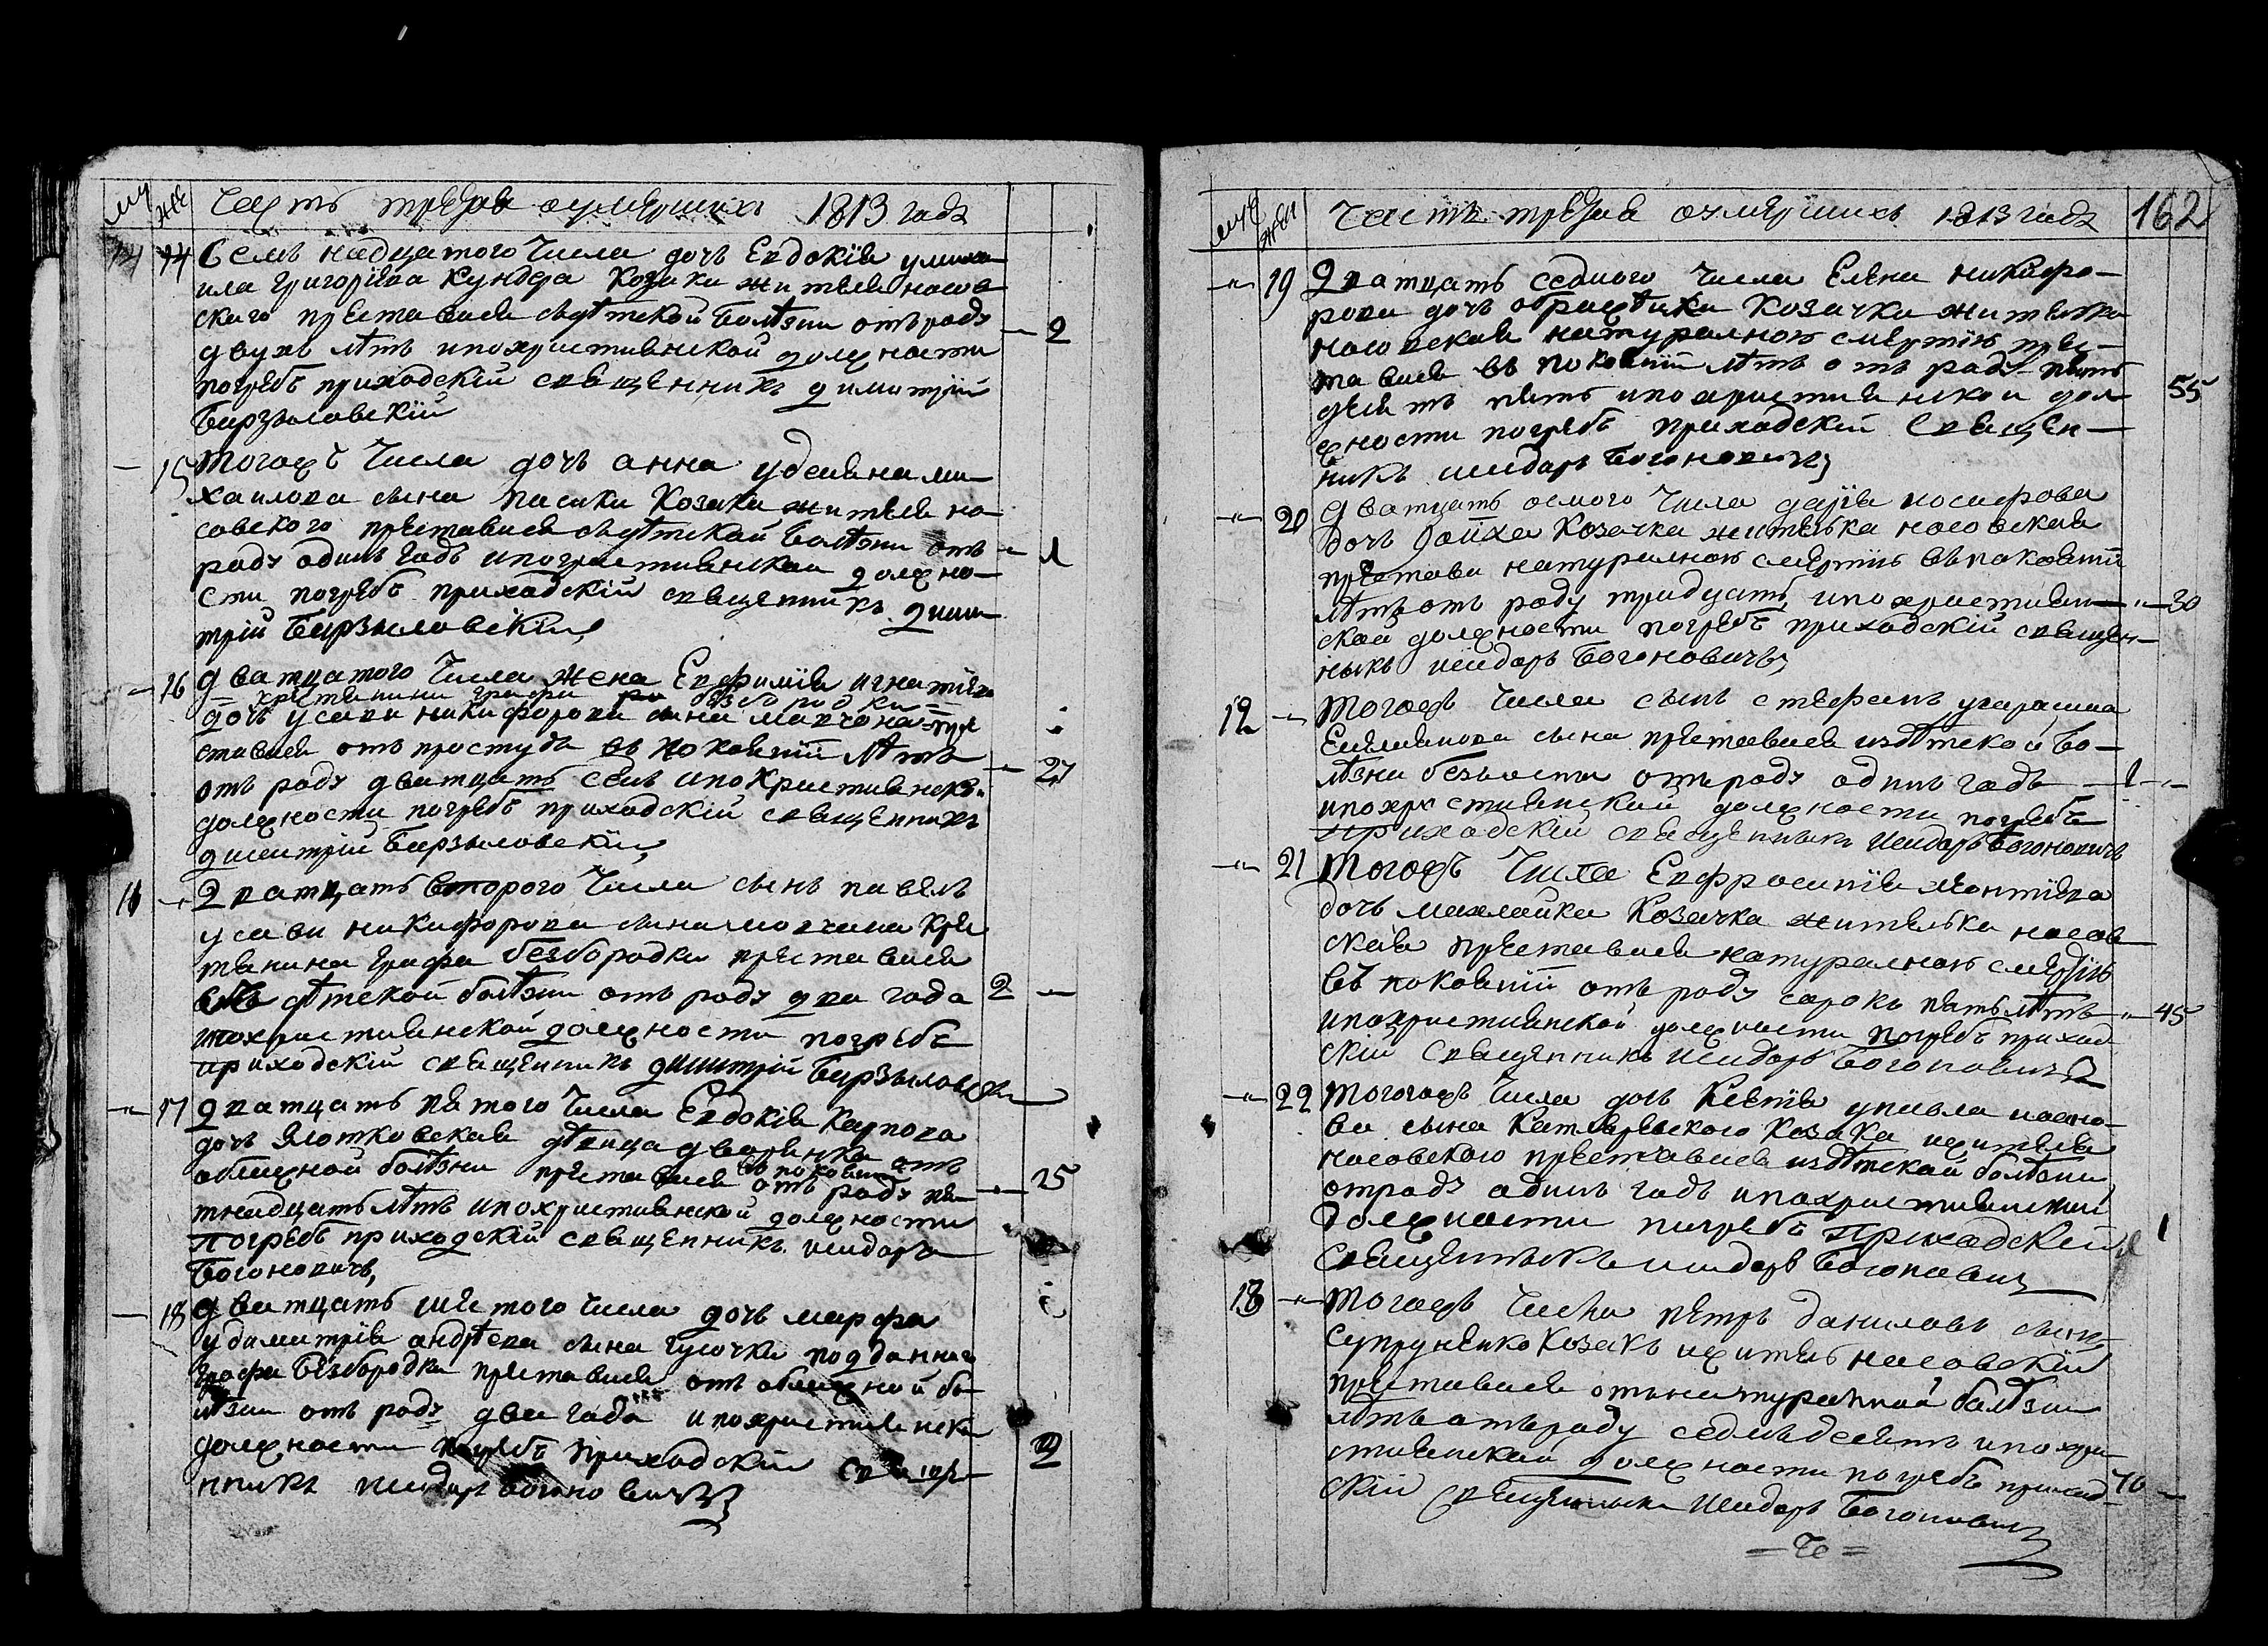 му же Часть третая оумершихъ 1813 года
14 Семь надцатого Числа дочь Евдокія у
ила Григоріева Кундера Козака жителя носов
ского преставися дѣтской болѣзни отъ роду
двухъ лѣтъ ипохристиянской должности — 2
погребъ приходскій священникъ димитрій
Бирзыловскій
— 15 Тогожъ Числа дочь анна уд ми
хаилова сына пасики Козака жителя но
совского преставися дѣтской болѣзни отъ
роду одинъ годъ ипохристиянской должно — 1
сти погребъ приходскій священникъ дими
трій Бирзыловскій
— 16 дватцатого Числа жена Евфимія игнатіева
крестянина графа безбородки
дочь усави никифорова сына мовчана пре
ставися отъ простуды въ покояніи лѣтъ
отъ роду дватцать седмъ ипохристиянск. — 27
должности погребъ приходскій священникъ
димитрій Бирзыловскій
11 — дватцать второго Числа сынъ павелъ
усави никифорова сына мовчана кре
стянина графа безбородки преставися
дѣтской болѣзни отъ роду два года 2 —
ипохристиянской должности погребъ
приходскій священникъ димитрій Бирзыловскій
— 17 дватцать пятого Числа Евдокія Карпова
дочь Ялотковская дѣвица дворянка отъ
облежной болѣзни преставися въ покояніи отъ роду пя — 15
тнадцать лѣтъ ипохристиянской должности
погребъ приходскій священникъ исидоръ
Богоновичъ
— 18 дватцать шестого Числа дочь марфа
у димитрія андрѣева сына гусочки подданного
графа безбородки преставися отъ облежной бо
лѣзни отъ роду два года ипохристиянской
должности погребъ приходскій священ 2
никъ исидоръ Богоновичъ
муж жен Часть третая оумершихъ 1813 года 162
— 19 Дватцать седмого Числа Елена никифо-
рова дочь Козачка жителка
носовская натуралною смертію прес-
тавися въ покояніи лѣтъ отъ роду пять
десятъ пять ипохристиянской дол 55
жности погребъ приходскій Священ-
никъ исидоръ Богоновичъ
— 20 дватцать осмого Числа дарія иосифова
дочь Козачка жителка носовская
престави натуралною смертію въпокояніи
лѣтъ отъ роду тридцать ипохристиян — 30
ской должности погребъ приходскій священ-
ныкъ исидоръ Богоновичъ
12 — Тогожъ Числа сынъ стефанъ угарасима
Емелианова сына преставися издѣтской бо-
лѣзни отъ роду одинъ годъ — 1 —
ипохристиянской должности погребъ
приходскій священныкъ Исидоръ Богоновичъ
— 21 Тогожъ Числа Евфросинія леонтіева
дочь махлайка Козачка жителка носов
ская преставися натуралною смертію
въ покояніи отъ роду сорокъ пять лѣтъ — 45
ипохристиянской должности погребъ приход
скій Священникъ исидоръ Богоновичъ
— 22 Тогогожъ Числа дочь Ксенія упавла
ва сына Козака жителя
носовского преставися издѣтской болѣзни
отроду одинъ годъ ипохристиянской
должности погребъ приходскій 1
Священныкъ исидоръ Богоновичъ
13 — Тогожъ Числа петръ даниловъ сынъ
Супруненко Козакъ житель носовскій
преставися отънатуралной болѣзни
лѣтъ отъроду седмьдесятъ ипохри
стиянской должности погребъ приход 70 —
скій Священныкъ Исидоръ Богоновичъ